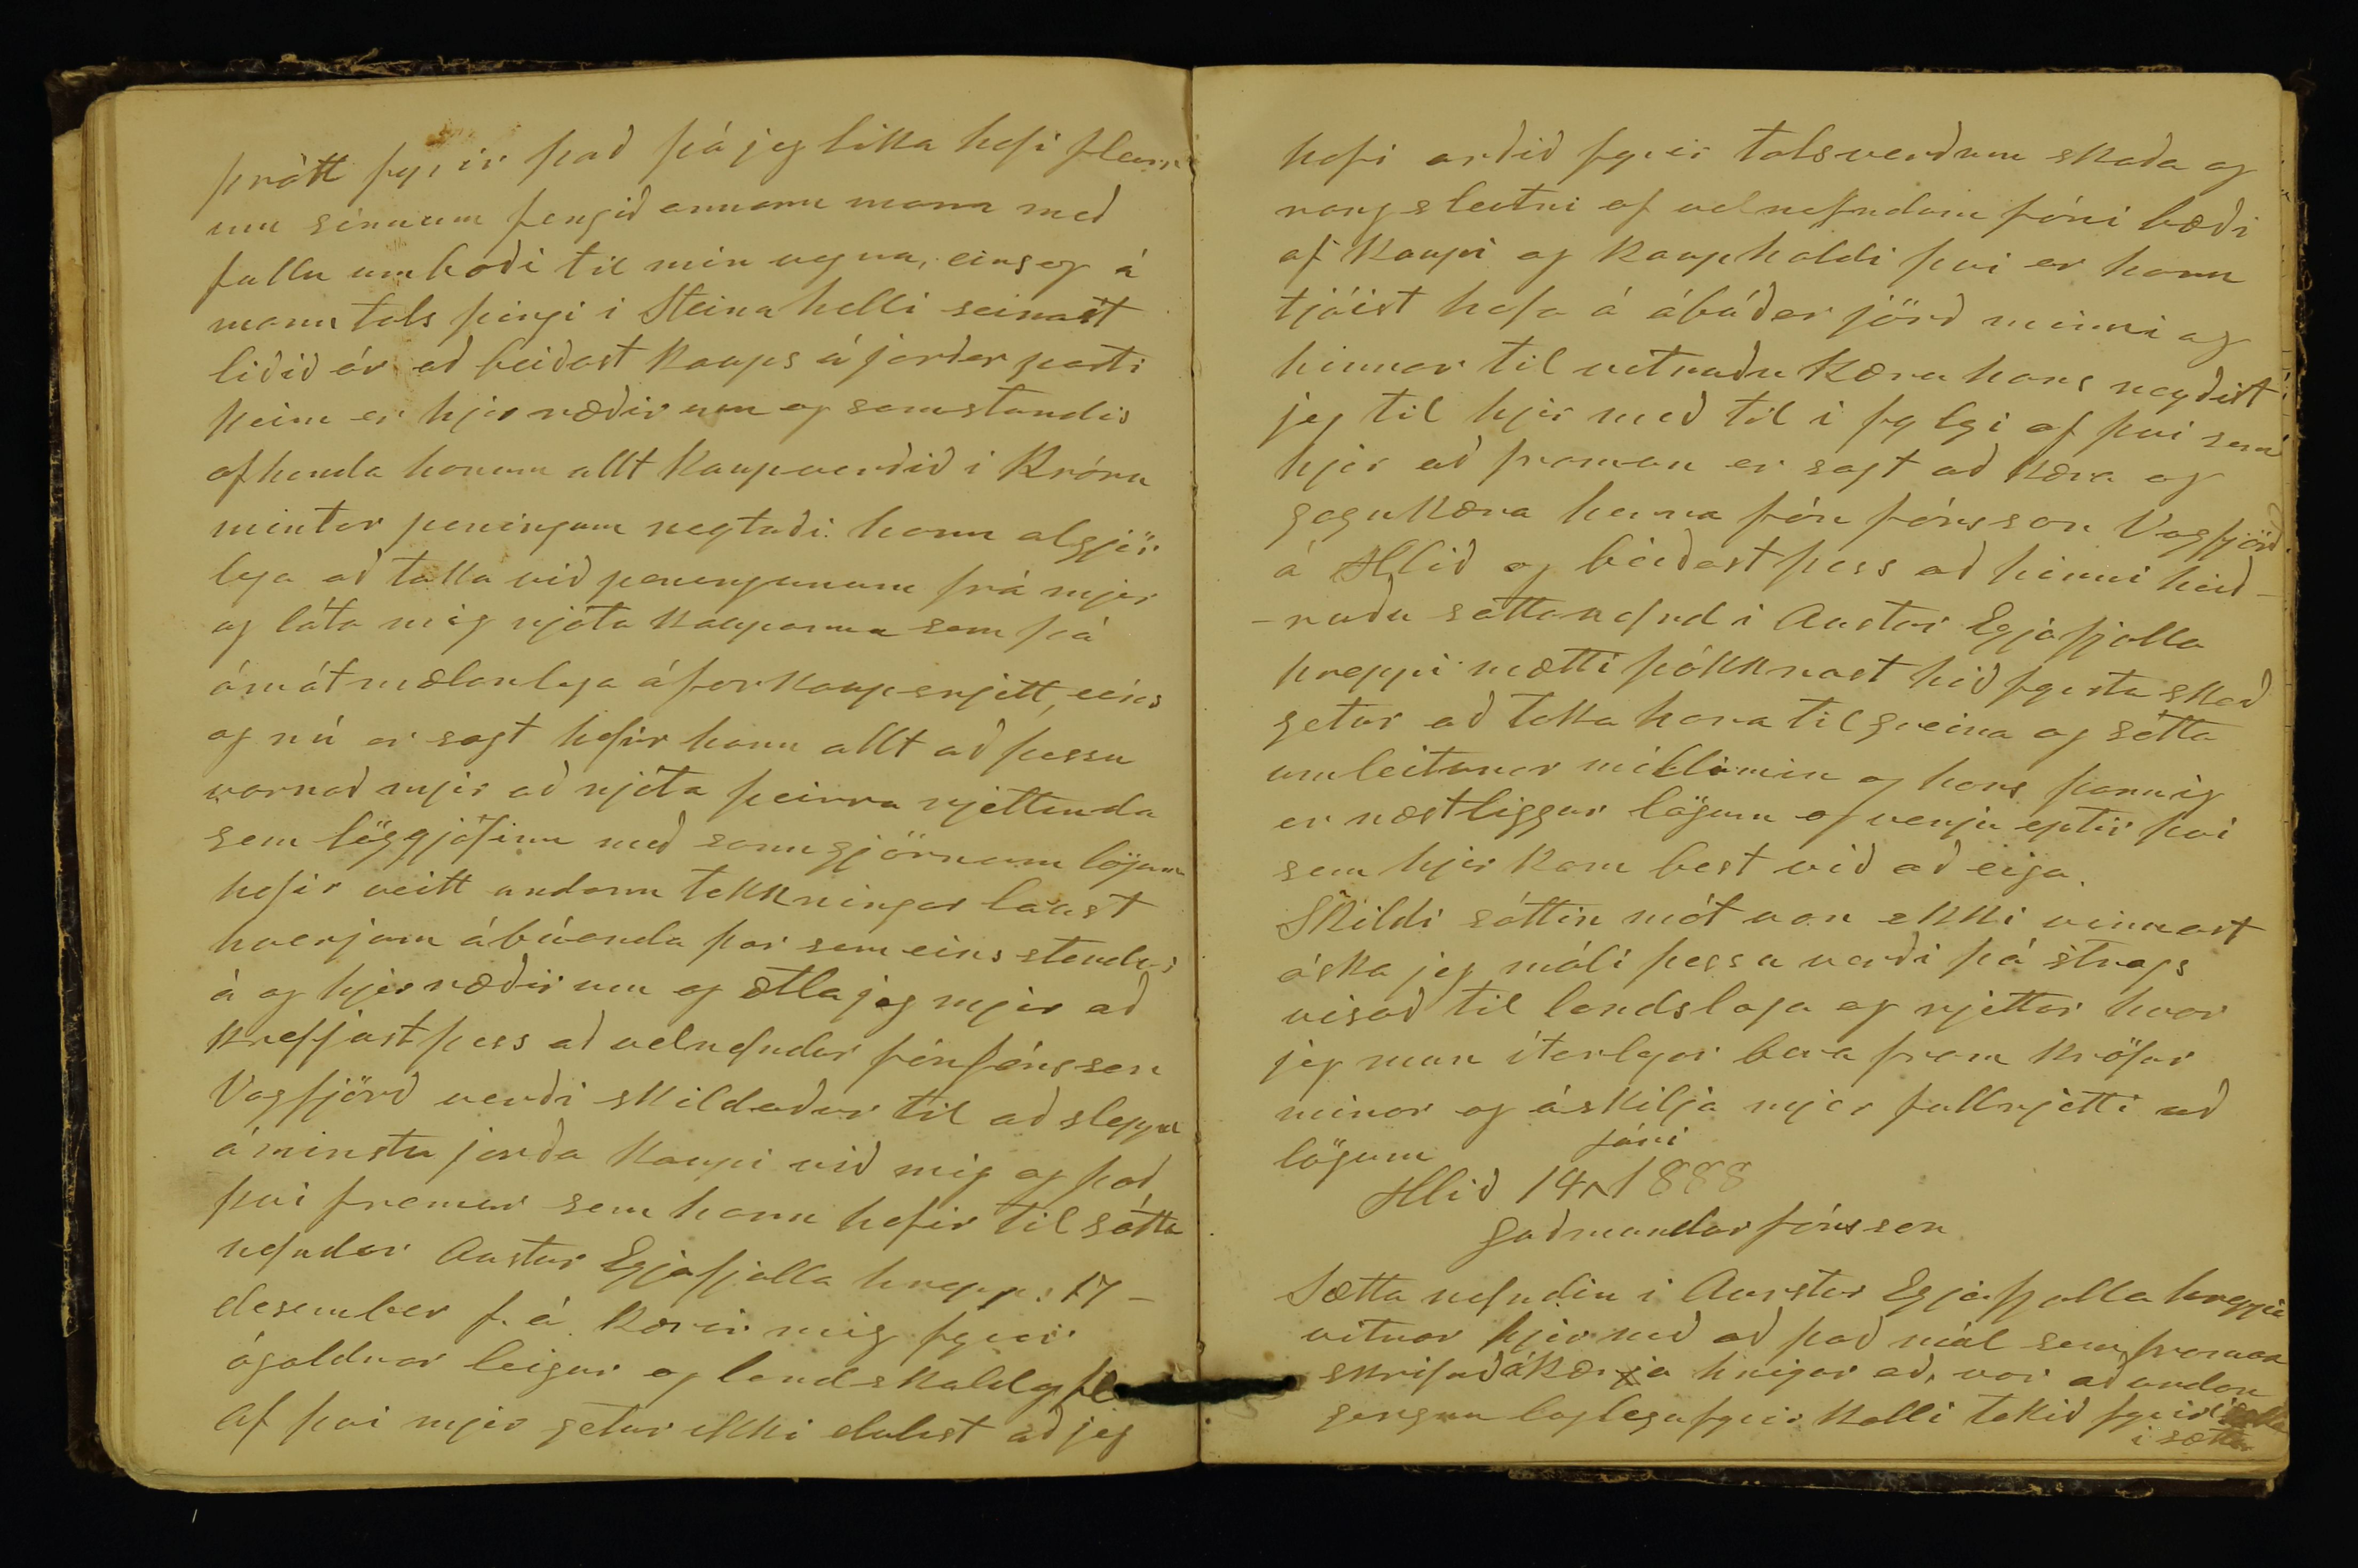 þrátt fyrir það þá jeg líka hefi fleirr
um sinnum fengið annann mann með
fullu umboði til min vegna, eins og á
manntals þingi i Steina helli seinast
liðið ár að beiðast kaups á jarðar parti
þeim er hjer ræðir um og samstundis
afhenda honum allt kaupverðið i Krónu
mintar peningum negtaði hann algjör
lega að taka við peningunum frá mjer
og láta mig njóta kaupanna sem þá
ómótmælanlega áforkaupsrjett, eins
og nú er sagt hefir hann allt að þessu
varnað mjer að njóta þeirra rjettinda
sem löggjöfinn með sanngjörnum lögum
hefir veitt undann tekkningar laust
hverjum ábúanda þar sem eins stendur
á og hjer ræðir um og ætla jeg mjer að
krefjast þess að velnefndur Jón Jónsson
Vagfjörð verði skildaður til að sleppa
áminstu jarða kaupi við mig og það
þvi fremur sem hann hefir til sátta
nefndar Austur Eyjafjalla hrepps 17 –
desember f. á. kærir mig fyrir
ógoldnar leigur og landskuld og fl
af þvi mjer getur ekki dulist að jeg
hefi orðið fyrir talsverðum skaða og
rangsleitni af velnefndum Jóni bæði
af kaupi og kauphaldi þvi er hann
tjáist hafa á ábúðar jörð minni og
hinnar til vitnuðu Kæru hans neyðist
jeg til hjer með til i fylgi af þvi sem
hjer að framan er sagt að kæra og
gagnkæra herra Jón Jónsson Vagfjörð
á Hlið og beiðast þess að hinni heið –
– ruðu sáttanefnd i Austur Eyjafjalla
hreppi mætti þókknast hið fyrsta skeð
getur að taka hana til greina og sátta
umleitunar milli min og hans þannig
er næst liggur lögum og venju eptir þvi
sem hjer kann best við að eiga.
Skildi sáttin mót von ekki vinnast
óska jeg máli þessu verði þá strags
visað til landslaga og rjettar hvar
jeg mun ítarlegar bera fram kröfur
minar og áskilja mjer fullrjetti að
lögum
Hlið 14 júni 1888
Guðmundur Jónsson
Sætta nefndin i Austur Eyjafjalla hreppi
vitnar hjer með að það mál sem framan
skrifuð ákæra hnigar að, var að undan
gengnu laglegu fyrir kalli tekið fyrir
i sætta